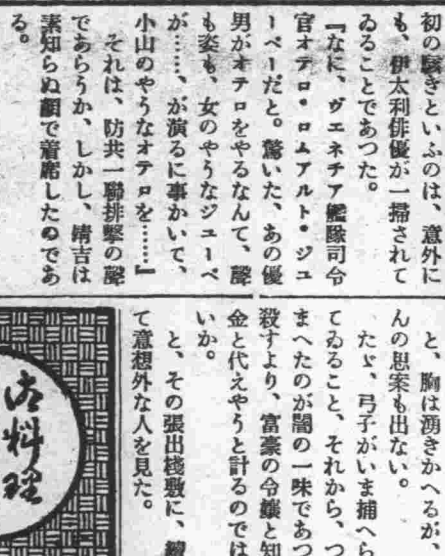 初の騒ぎといふのは、意外に
も、伊太利俳優が一掃されて
ゐることであつた。
『なに、ヴエネチア艦隊司令
官オテロ・ロムアルト・ジユ
ーペーだと。驚いた、あの優
男がオテロをやるなんて、聲
も姿も、女のやうなジユーペ
が……、が演るに事かいて、
小山のやうなオテロを……』
それは、防共一聯排撃の聲
であらうか、しかし、靖吉は
素知らぬ顔で着席したのであ
る。
と、胸は湧きかへるが、
んの思案も出ない。
たゞ、弓子がいま捕へら
てゐること、それから、つ
まへたのが闇の一味であつ
殺すより、富豪の令孃と知
金と代えやうと計るのでは
いか。
と、その張出棧敷に、
て意想外な人を見た。
料理